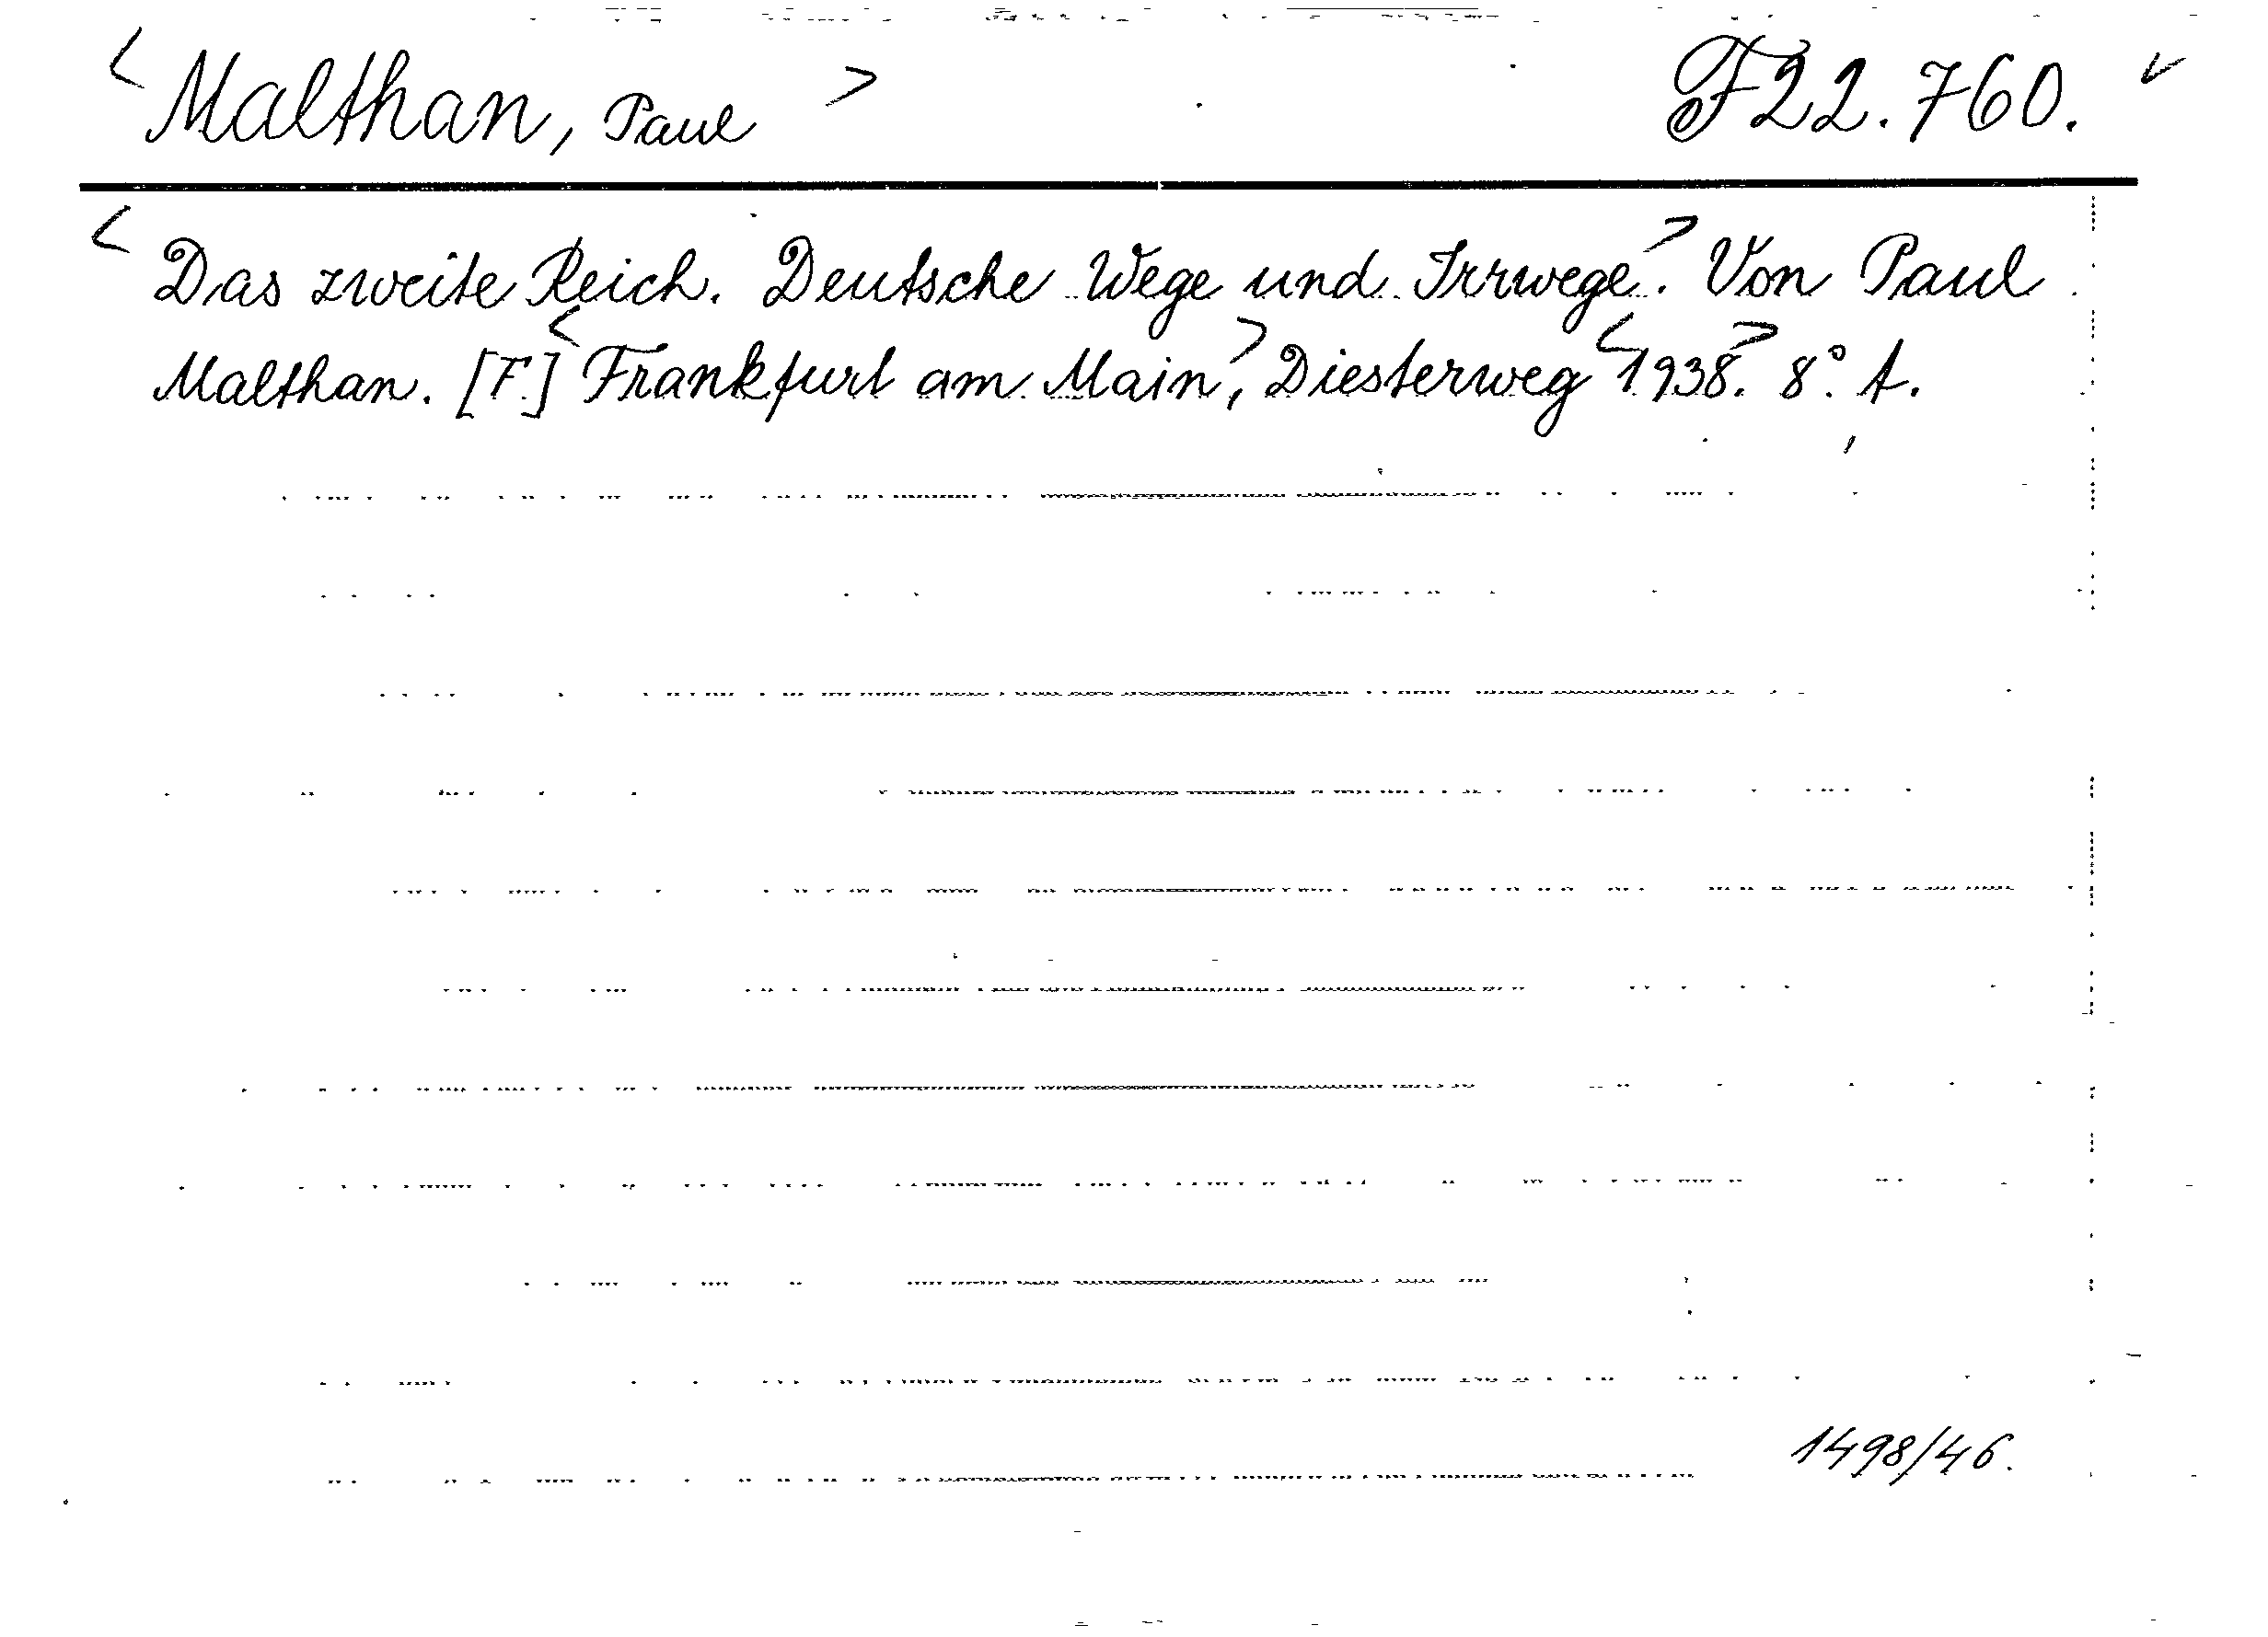 < Malthan, Paul > F 22.760. ✓
< Das zweite Reich. Deutsche Wege und Irrwege >. Von Paul
Malthan. [F.] < Frankfurt am Main >, Diesterweg < 1938. > 8°. A.
1498/46.